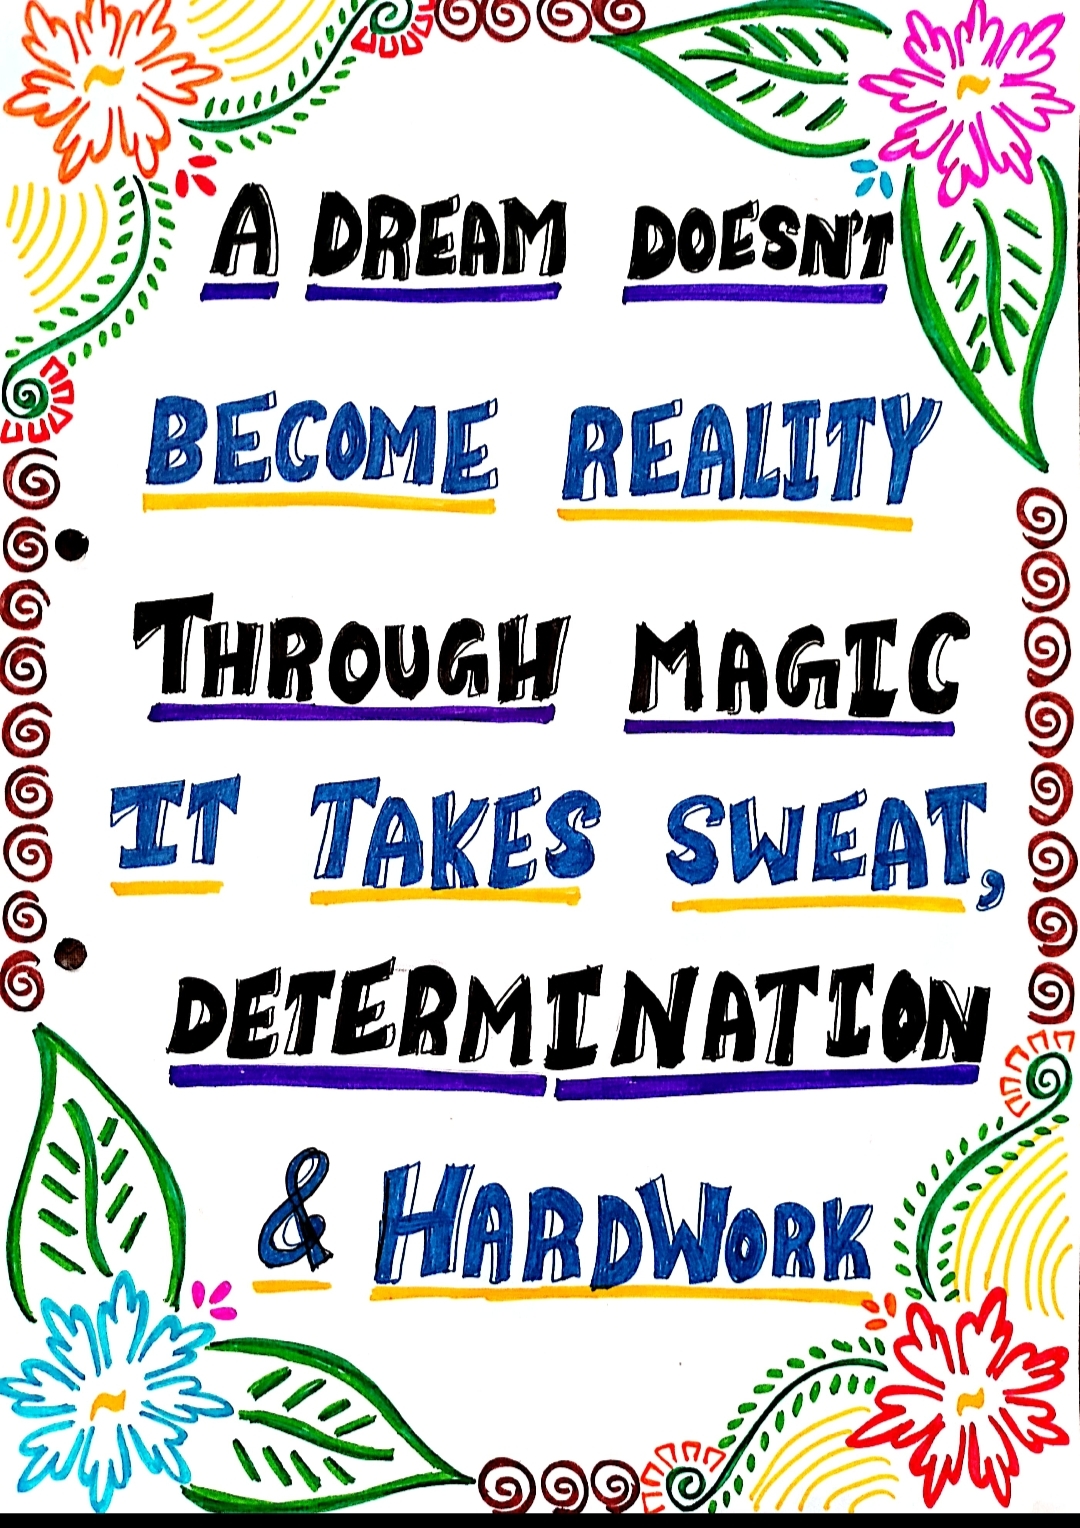 A DREAM DOESN'T
BECOME REALITY
THROUGH MAGIC
IT TAKES SWEAT,
DETERMINATION
& HARDWORK